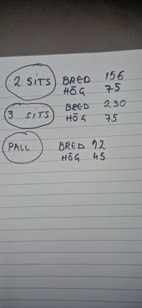 2 SITS BRED 156
HÖG 75
3 SITS BRED 230
HÖG 75
PALL BRED 92
HÖG 45